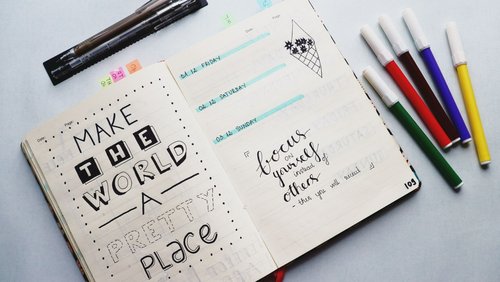 MAKE
THE
WORLD
A
PRETTY
PLACE
Date:
04.12 FRIDAY
02.12 SATURDAY
03.12 SUNDAY
focus
on
yourself
instead of
others
- then you will succeed
105